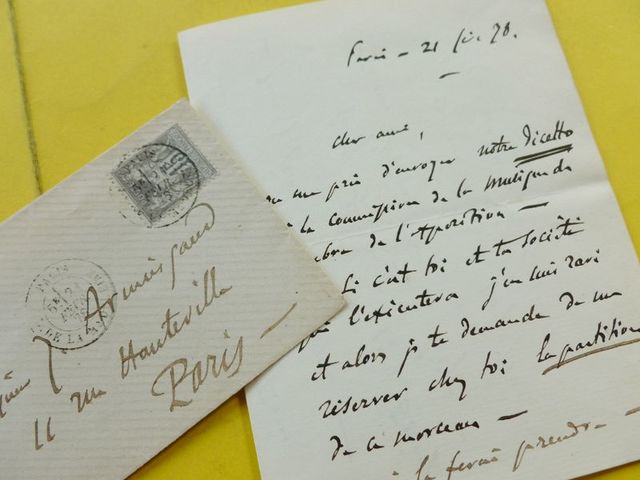 Paris – 21 fév. 78.
cher ami,
on me prie d'envoyer notre Dicetto
à la commission de la musique de
de l'Exposition –
Si c'est toi et ta société
qui l'exécutera j'en suis ravi
et alors je te demande de me
réserver chez toi la partition
de ce morceau –
la ferai prendre –
11 rue Hauteville
Paris –